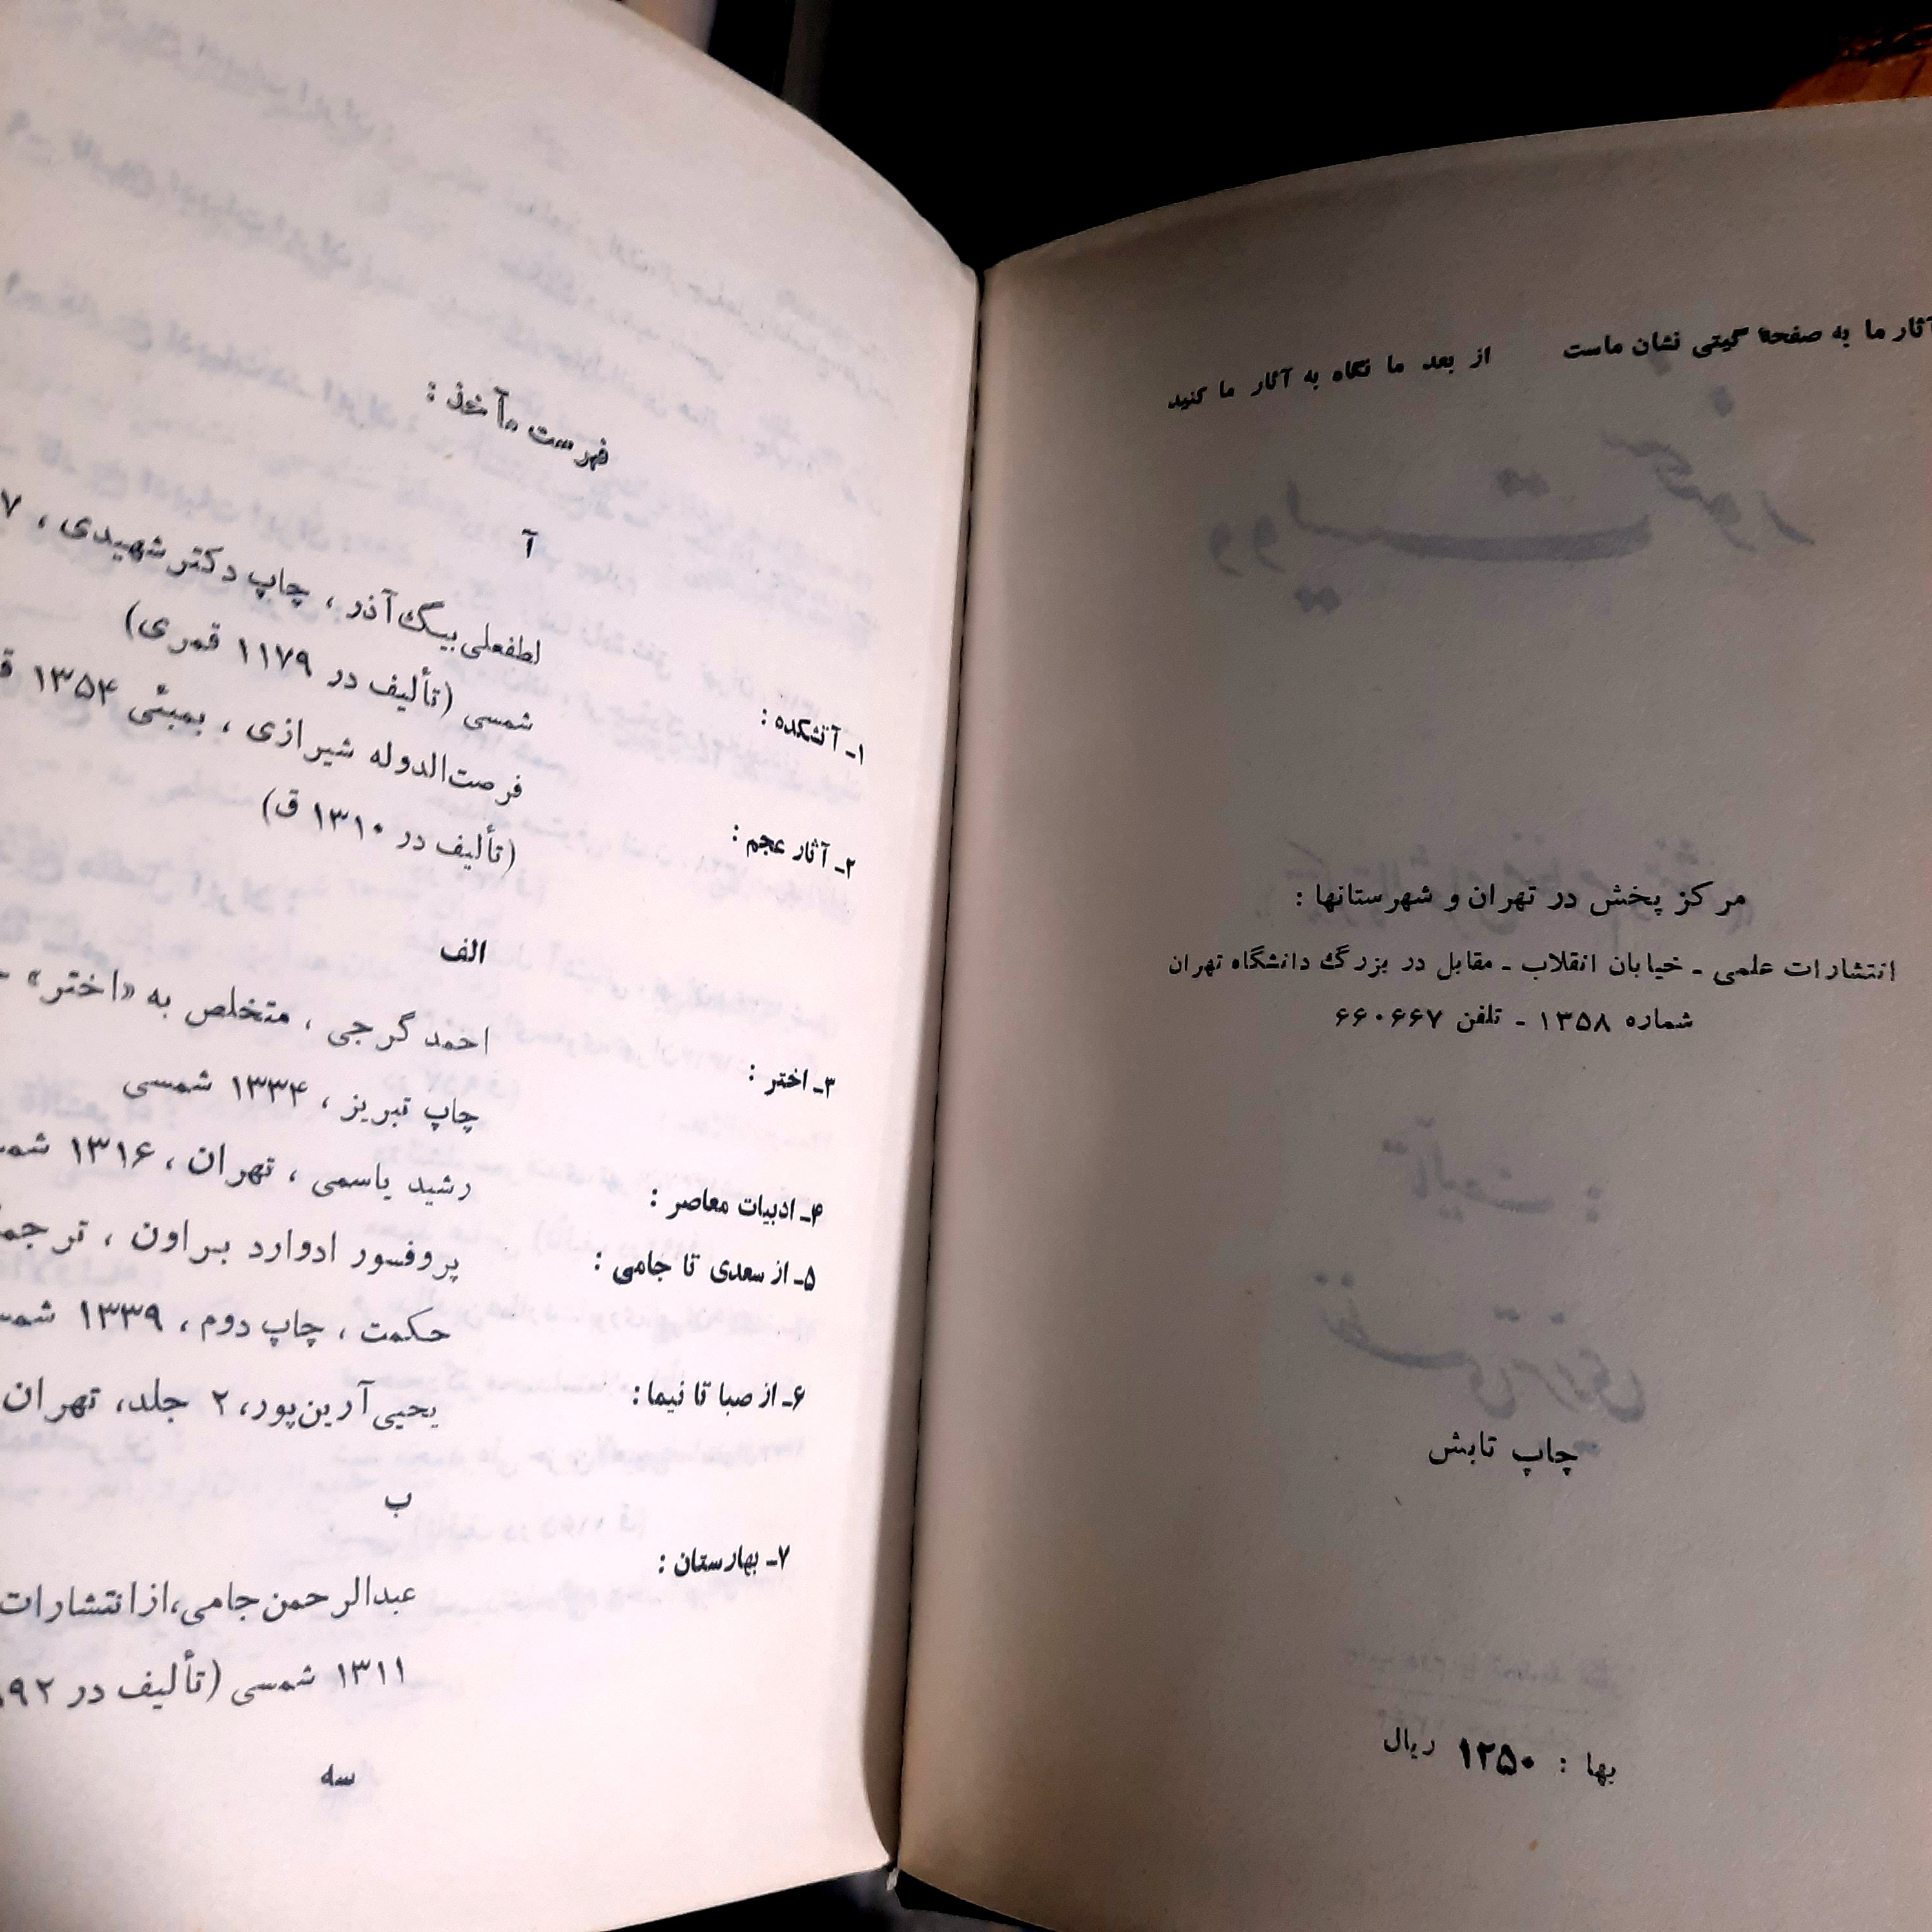 آثار ما به صفحهٔ گیتی نشان ماست از بعد ما نگاه به آثار ما کنید
مرکز پخش در تهران و شهرستانها :
انتشارات علمی ـ خیابان انقلاب ـ مقابل در بزرگ دانشگاه تهران
شماره ۱۳۵۸ ـ تلفن ۶۶۰۶۶۷
چاپ تابش
بها : ۱۲۵۰ ریال
فهرست مآخذ :
آ
۱ـ آتشکده : لطفعلی‌بیگ‌آذر ، چاپ دکتر شهیدی ،
شمسی (تألیف در ۱۱۷۹ قمری)
۲ـ آثار عجم : فرصت‌الدوله شیرازی ، بمبئی ۱۳۵۴
(تألیف در ۱۳۱۰ ق)
الف
۳ـ اختر : احمد گرجی ، متخلص به «اختر»
چاپ تبریز ، ۱۳۳۴ شمسی
۴ـ ادبیات معاصر : رشید یاسمی ، تهران ، ۱۳۱۶
۵ـ از سعدی تا جامی : پروفسور ادوارد براون ،
حکمت ، چاپ دوم ، ۱۳۳۹
۶ـ از صبا تا نیما : یحیی‌آرین‌پور، ۲ جلد، تهران
ب
۷ـ بهارستان : عبدالرحمن‌جامی،ازانتشارات
۱۳۱۱ شمسی (تألیف در
سه